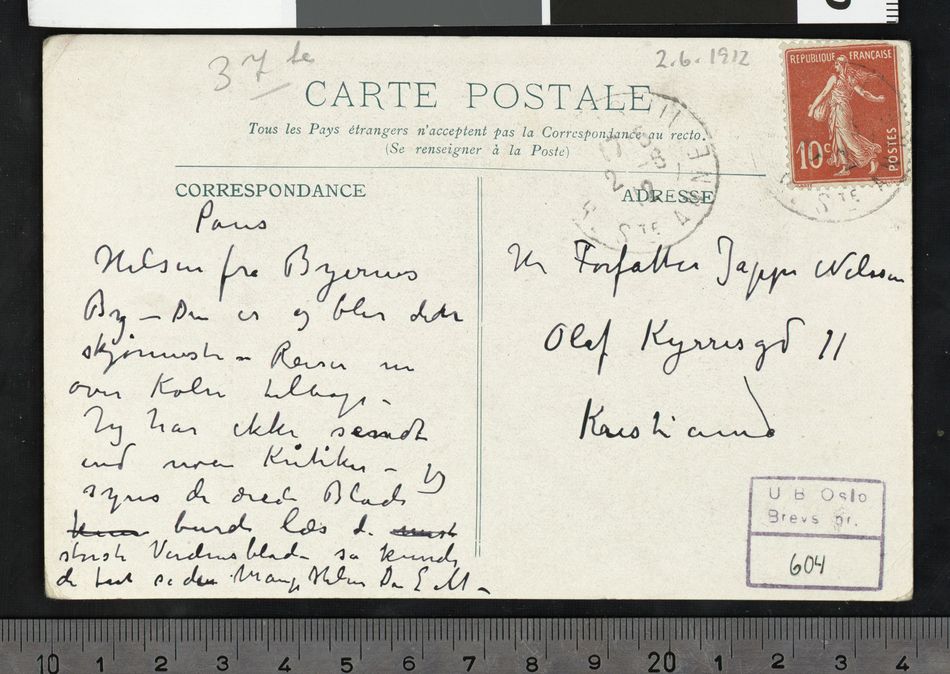 37te
2.6.1912
CARTE POSTALE
Tous les Pays étrangers n'acceptent pas la Correspondance au recto.
(Se renseigner à la Poste)
REPUBLIQUE FRANÇAISE
10c
POSTES
STE ANNE
CORRESPONDANCE
ADRESSE
Paris
Hilsen fra Byernes
By – Den er og blir dette
skjønneste – Reiser nu
over Køln tilbage –
Jeg har ikke sendt
ind noen Kritiker – Jeg
synes de ærede Blade
burde læse de
største Verdensblade så kunde
de Mange Hilsen Din E M –
Hr Forfatter Jappe Nilssen
Olaf Kyrresgd 11
Kristiania
U B Oslo
Brevs nr.
604
10 1 2 3 4 5 6 7 8 9 20 1 2 3 4